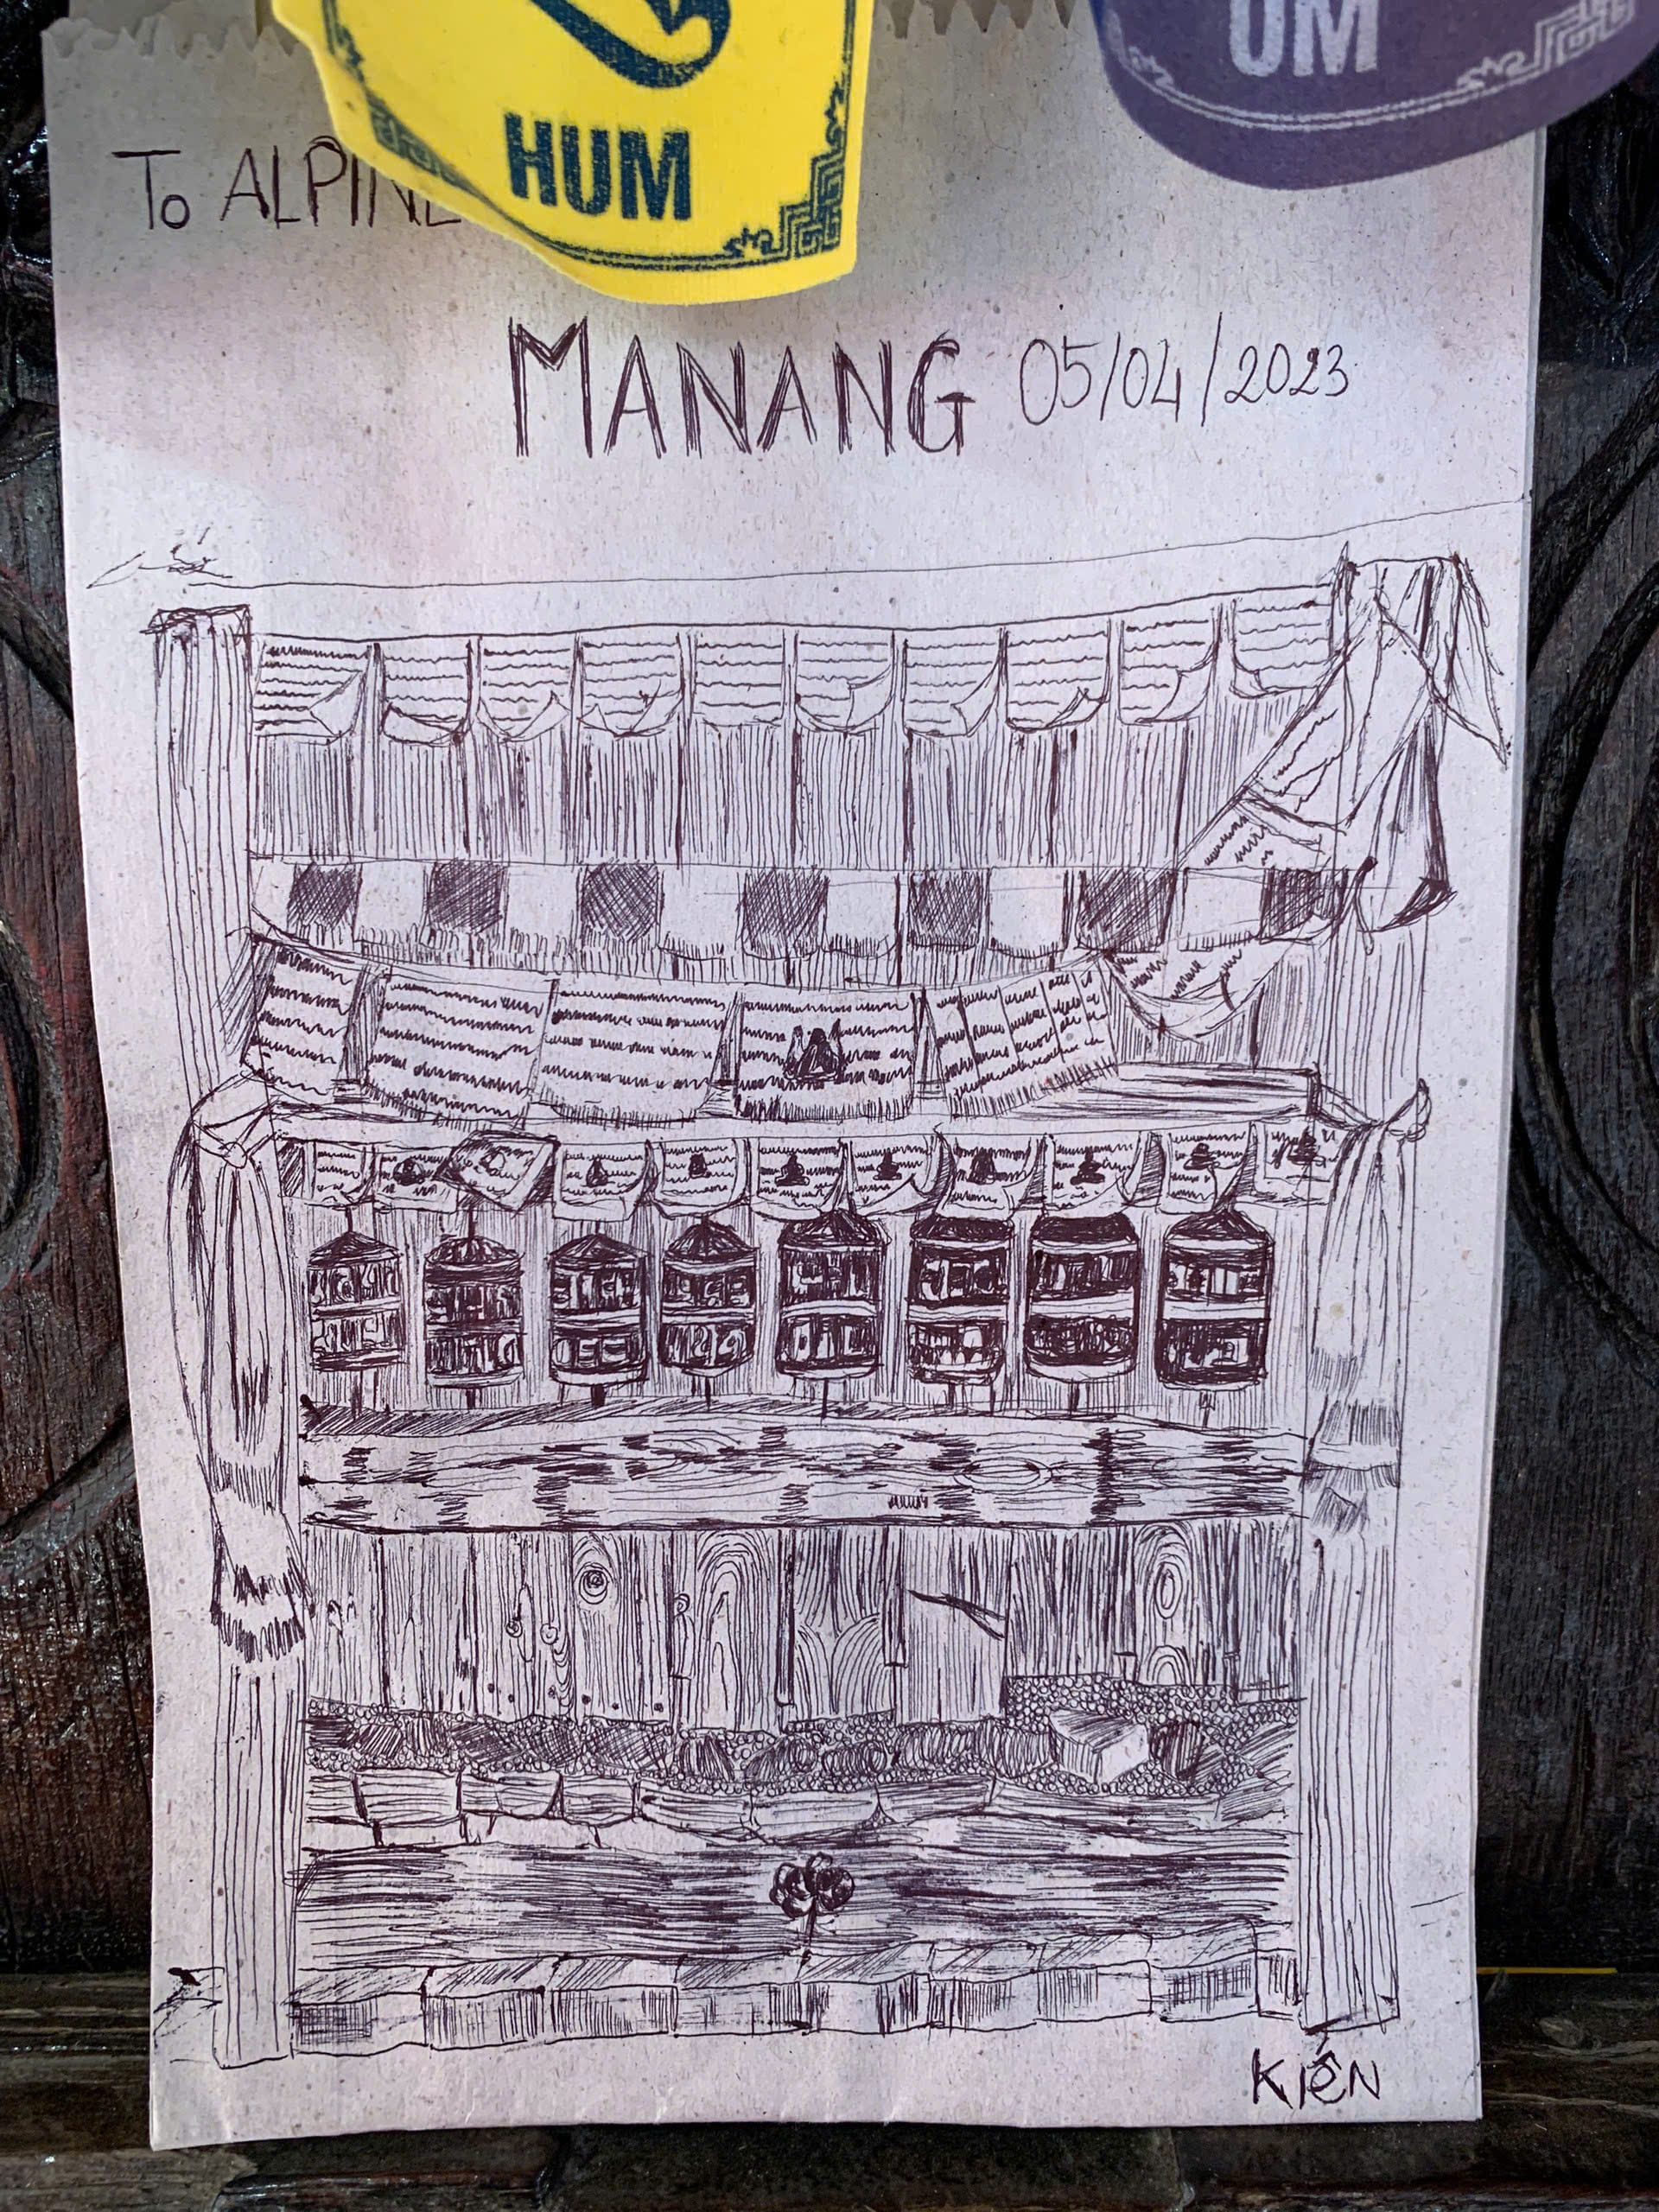 HUM
OM
To ALPINE
MANANG 05/04/2023
KIÊN